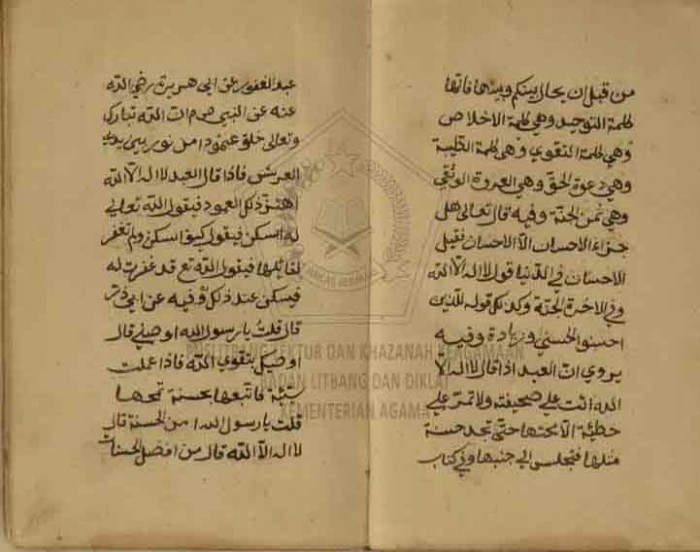 من قبل ان يحال بينكم وبينها فانها
كلمة التوحيد وهي كلمة الاخلاص
وهي كلمة التقوي وهي كلمة الطيبة
وهي دعوة الحق وهي العروة الوثقي
وهي ثمن الجنة وفيه قال تعالى هل
جزاء الاحسان الا الاحسان فقيل
الاحسان في الدنيا قول لا اله الا الله
وفي الاخرة الجنة وكذلك قوله للذين
احسنوا الحسني وزيادة وفيه
يروي ان العبد اذا قال لا اله الا
الله اتت على صحيفته ولا تمر على
خطيئة الا محتها حتى تجد حسنة
مثلها فتجلس الي جنبها وفي كتاب
عبد الغفور عن ابي هريرة رضي الله
عنه عن النبي صم ان الله تبارك
وتعالى خلق عمودا من نور بين يدي
العرش فاذا قال العبد لا اله الا الله
اهتز ذلك العمود فيقول الله تعالى
له اسكن فيقول كيف اسكن ولم تغفر
لقائلها فيقول الله تع قد غفرت له
فيسكن عند ذلك وفيه عن ابي ذر
قال قلت يا رسول الله اوصيني قال
اوصيك بتقوي الله فاذا عملت
سيئة فاتبعها بحسنة تمحها
قلت يا رسول الله امن الحسنة قال
لا اله الا الله قال من افضل الحسنات
PUSLITBANG LEKTUR DAN KHAZANAH KEAGAMAAN
BADAN LITBANG DAN DIKLAT
KEMENTERIAN AGAMA